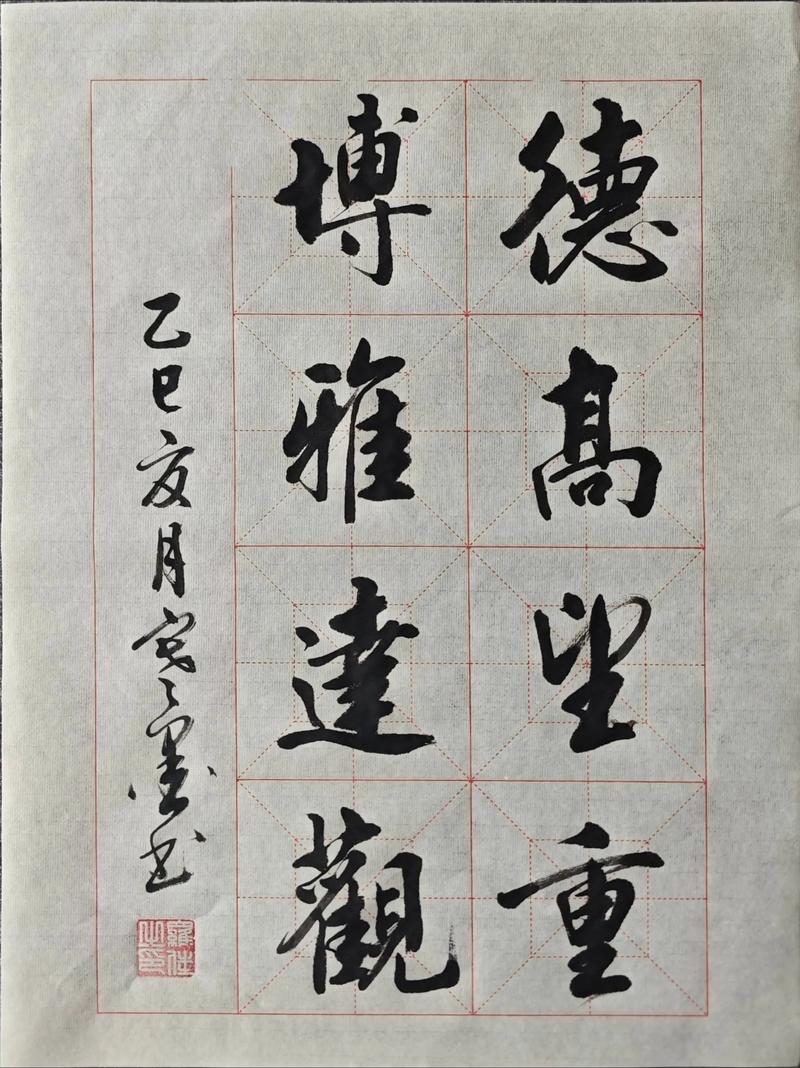 德高望重
博雅達觀
乙巳亥月墨书